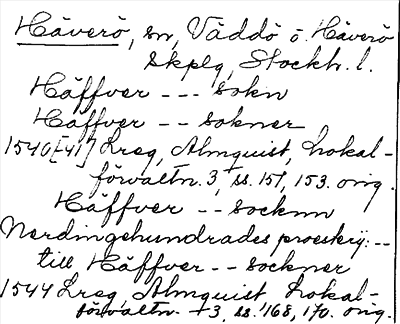 Häverö, sn, Väddö o. Häverö
skplg, Stockh. l.
Häffver --- sokn
Häffver -- sokner
1540[41] Lreg, Almquist, Lokal-
förvaltn. 3, ss. 151, 153. orig.
Häffver -- socknn
Nerdingehundrades proesterij: --
till Häffver -- sockner
1544 Lreg, Almquist, Lokal-
förvaltn. 3, ss. 168, 170. orig.